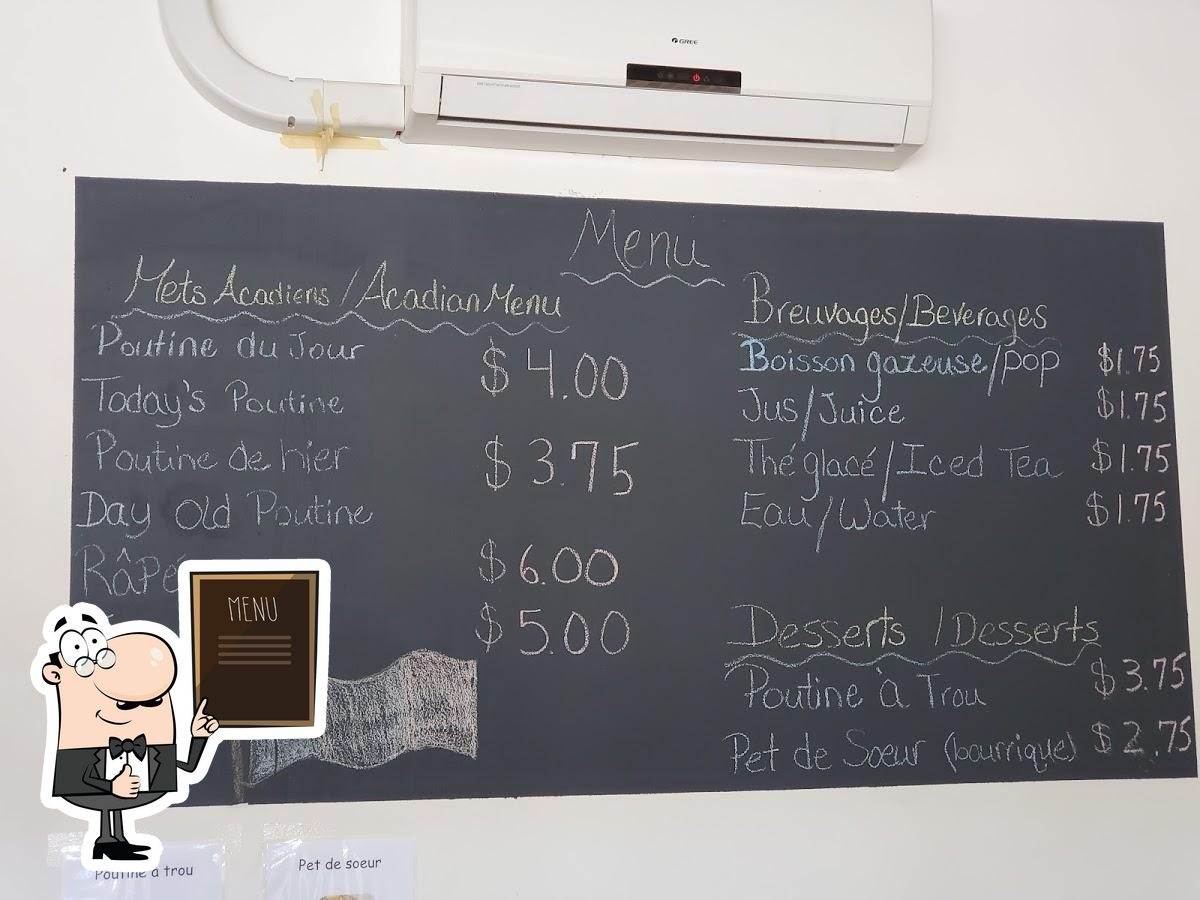 GREE
Menu
Mets Acadiens/Acadian Menu
Poutine du Jour
Today's Poutine $4.00
Poutine de hier $3.75
Day old Poutine
Râpé $6.00
$5.00
MENU
Breuvages/Beverages
Boisson gazeuse/pop $1.75
Jus/Juice $1.75
Thé glacé/Iced Tea $1.75
Eau/Water $1.75
Desserts/Desserts
Poutine à Trou $3.75
Pet de Soeur (bourrique) $2.75
Poutine à trou
Pet de soeur